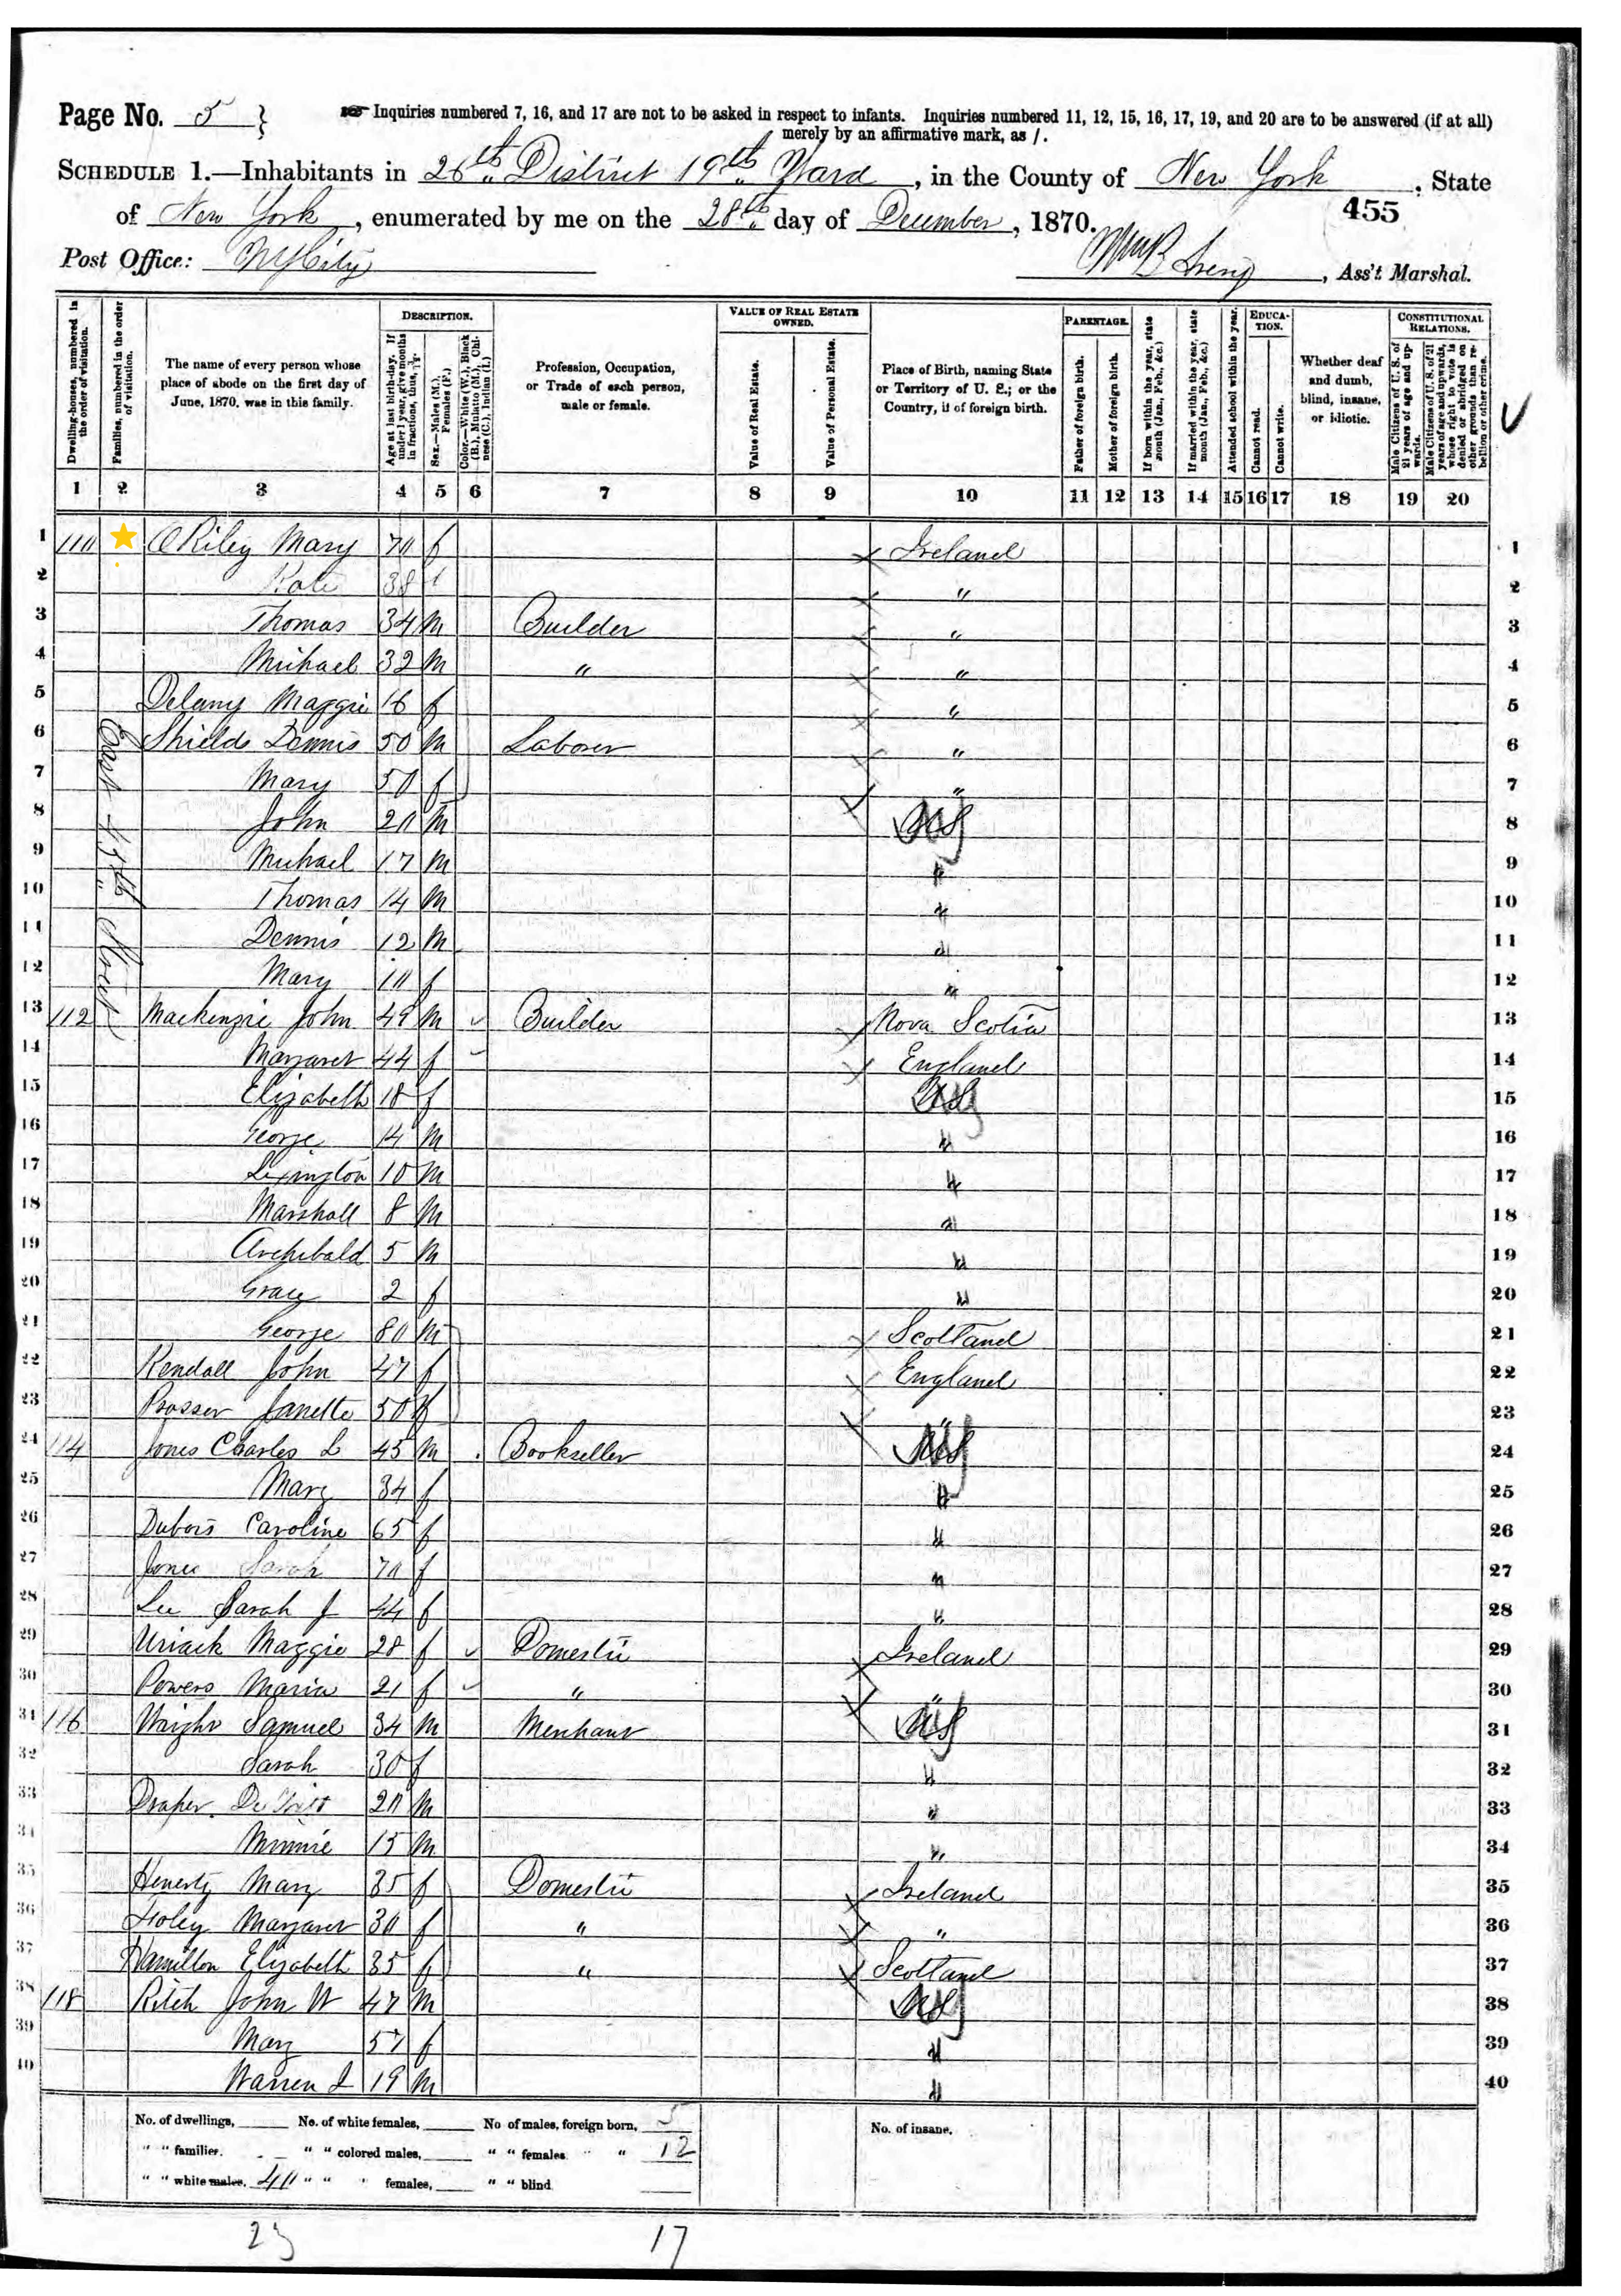 Page No. 5 }
Inquiries numbered 7, 16, and 17 are not to be asked in respect to infants. Inquiries numbered 11, 12, 15, 16, 17, 19, and 20 are to be answered (if at all)
merely by an affirmative mark, as /.
SCHEDULE 1.—Inhabitants in 26th District 19th Ward, in the County of New York, State
of New York, enumerated by me on the 28th day of December, 1870.
455
Post Office: NYCity
Wm B, Ass't Marshal.
Dwelling-houses, numbered in the order of visitation.
Families, numbered in the order of visitation.
The name of every person whose place of abode on the first day of June, 1870, was in this family.
DESCRIPTION.
Age at last birth-day. If under 1 year, give months in fractions, thus, 3/12
Sex.—Males (M.), Females (F.)
Color.—White (W.), Black (B.), Mulatto (M.), Chinese (C.), Indian (I.)
Profession, Occupation, or Trade of each person, male or female.
VALUE OF REAL ESTATE OWNED.
Value of Real Estate.
Value of Personal Estate.
Place of Birth, naming State or Territory of U. S.; or the Country, if of foreign birth.
PARENTAGE.
Father of foreign birth.
Mother of foreign birth.
If born within the year, state month (Jan., Feb., &c.)
If married within the year, state month (Jan., Feb., &c.)
Attended school within the year.
EDUCATION.
Cannot read.
Cannot write.
Whether deaf and dumb, blind, insane, or idiotic.
CONSTITUTIONAL RELATIONS.
Male Citizens of U. S. of 21 years of age and upwards.
Male Citizens of U. S. of 21 years of age and upwards, whose right to vote is denied or abridged on other grounds than rebellion or other crime.
1 2 3 4 5 6 7 8 9 10 11 12 13 14 15 16 17 18 19 20
East 45th Street
1 110 ORiley Mary 70 f Ireland 1
2 Kate 38 f " 2
3 Thomas 34 M Builder " 3
4 Michael 32 M " " 4
5 Delany Maggie 16 f " 5
6 Shields Dennis 50 M Laborer " 6
7 Mary 50 f " 7
8 John 20 M US 8
9 Michael 17 M " 9
10 Thomas 14 M " 10
11 Dennis 12 M " 11
12 Mary 10 f " 12
13 112 Mackenzie John 49 M Builder Nova Scotia 13
14 Margaret 44 f England 14
15 Elizabeth 18 f US 15
16 George 14 M " 16
17 Lexington 10 M " 17
18 Marshall 8 M " 18
19 Archibald 5 M " 19
20 Grace 2 f " 20
21 George 80 M Scotland 21
22 Kendall John 47 f England 22
23 Prosser Janette 50 f " 23
24 114 Jones Charles L 45 M Bookseller US 24
25 Mary 34 f " 25
26 Dubois Caroline 65 f " 26
27 Jones Sarah 70 f " 27
28 Lee Sarah J 44 f " 28
29 Maggie 28 f Domestic Ireland 29
30 Powers Maria 21 f " " 30
31 116 Wright Samuel 34 M Merchant US 31
32 Sarah 30 f " 32
33 Draper DeWitt 20 M " 33
34 Minnie 15 M " 34
35 Henerty Mary 35 f Domestic Ireland 35
36 Foley Margaret 30 f " " 36
37 Hamilton Elizabeth 35 f " Scotland 37
38 118 Ritch John W 47 M US 38
39 Mary 57 f " 39
40 Warren I 19 M " 40
No. of dwellings, No. of white females, No of males, foreign born, 5 No. of insane,
" " families. " " colored males, " " females " " 12
" " white males, 40 " " " females, " " blind
23 17